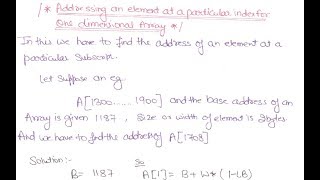 /* Addressing an element at a particular index for
One dimensional Array */
In this we have to find the address of an element at a
particular Subscript.
Let Suppose an eg.
A[1300......1900] and the base address of an
Array is given 1187, Size or width of element is 2bytes
And we have to find the address of A[1708]
Solution:- So
B = 1187 A[I] = B + W * (I-LB)